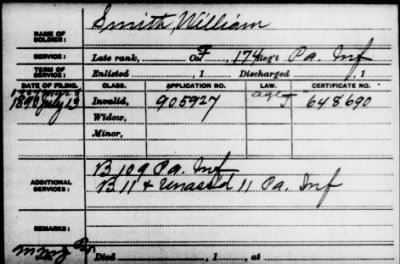 NAME OF SOLDIER: Smith, William
SERVICE: Late rank, Co. F, 174 Reg't Pa. Inf
TERM OF SERVICE: Enlisted , 1 Discharged , 1
DATE OF FILING. CLASS. APPLICATION NO. LAW. CERTIFICATE NO.
1890 July 19 Invalid, 905927 J 648690
Widow,
Minor,
B 109 Pa. Inf
ADDITIONAL SERVICES: B 11 & Unass'd 11 Pa. Inf
REMARKS:
Died , 1 , at